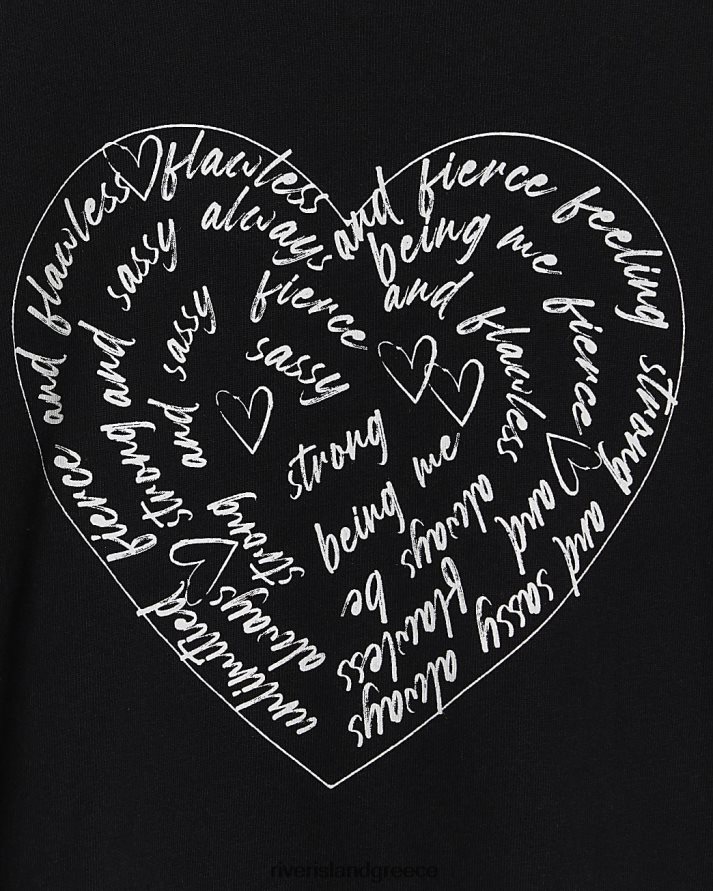 unlimited fierce and flawless flawless and fierce feeling strong and sassy always
always strong and sassy always being me fierce and flawless
strong and sassy fierce and flawless always be
sassy
strong
being me
riverislandgreece